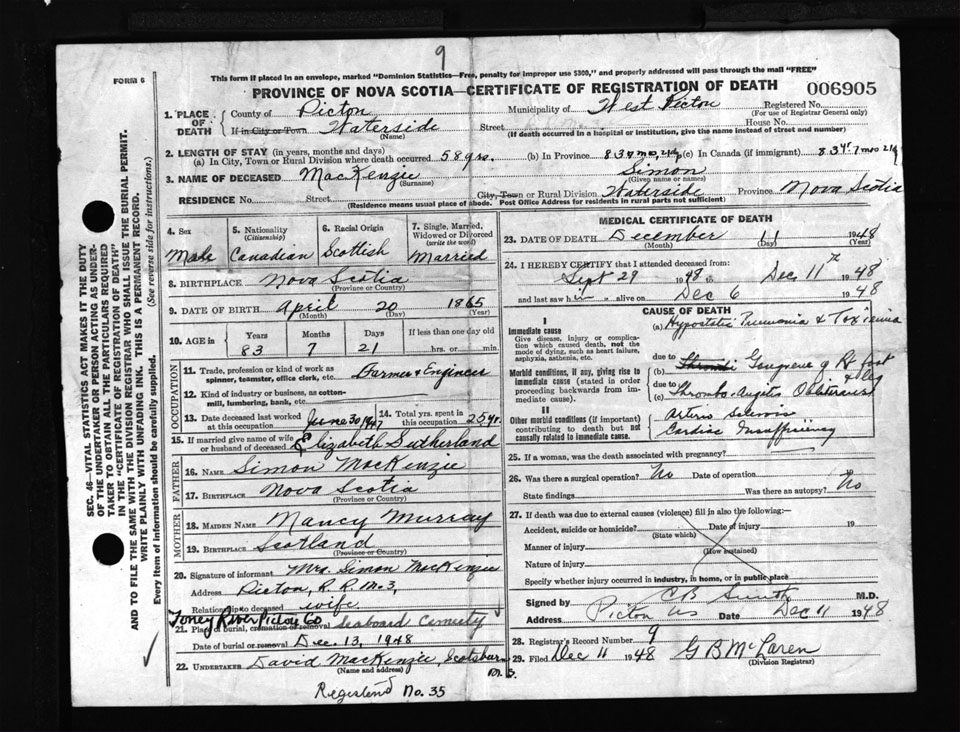 9
FORM 6
This form if placed in an envelope, marked "Dominion Statistics—Free, penalty for improper use $300," and properly addressed will pass through the mail "FREE"
PROVINCE OF NOVA SCOTIA—CERTIFICATE OF REGISTRATION OF DEATH 006905
SEC. 46—VITAL STATISTICS ACT MAKES IT THE DUTY
OF THE UNDERTAKER OR PERSON ACTING AS UNDER-
TAKER TO OBTAIN ALL THE PARTICULARS REQUIRED
IN THE "CERTIFICATE OF REGISTRATION OF DEATH"
AND TO FILE THE SAME WITH THE DIVISION REGISTRAR WHO SHALL ISSUE THE BURIAL PERMIT.
WRITE PLAINLY WITH UNFADING INK. THIS IS A PERMANENT RECORD.
Every item of information should be carefully supplied. (See reverse side for instructions.)
1. PLACE OF DEATH County of Picton Municipality of West Picton Registered No.
(For use of Registrar General only)
If in City or Town Waterside Street House No.
(Name) (If death occurred in a hospital or institution, give the name instead of street and number)
2. LENGTH OF STAY (in years, months and days)
(a) In City, Town or Rural Division where death occurred 58 yrs. (b) In Province 83 7 mo, 21 (c) In Canada (if immigrant) 83 yr 7 mo 21
3. NAME OF DECEASED MacKenzie Simon
(Surname) (Given name or names)
RESIDENCE No. Street City, Town or Rural Division Waterside Province Nova Scotia
(Residence means usual place of abode. Post Office Address for residents in rural parts not sufficient)
4. Sex 5. Nationality (Citizenship) 6. Racial Origin 7. Single, Married, Widowed or Divorced (write the word)
Male Canadian Scottish Married
8. BIRTHPLACE Nova Scotia
(Province or Country)
9. DATE OF BIRTH April 20 1865
(Month) (Day) (Year)
10. AGE in Years Months Days If less than one day old
83 7 21 hrs. or min.
OCCUPATION
11. Trade, profession or kind of work as spinner, teamster, office clerk, etc. Farmer & Engineer
12. Kind of industry or business, as cotton-mill, lumbering, bank, etc.
13. Date deceased last worked at this occupation June 30 1947 14. Total yrs. spent in this occupation 25 yr.
15. If married give name of wife or husband of deceased Elizabeth Sutherland
FATHER
16. NAME Simon MacKenzie
17. BIRTHPLACE Nova Scotia
(Province or Country)
MOTHER
18. MAIDEN NAME Nancy Murray
19. BIRTHPLACE Scotland
(Province or Country)
20. Signature of informant Mrs. Simon MacKenzie
Address Picton, R.R. No 3,
Relationship to deceased wife
Toney River Pictou Co
21. Place of burial, cremation or removal Seaboard Cemetery
Date of burial or removal Dec. 13, 1948
22. UNDERTAKER David MacKenzie, Scotsburn
(Name and address) N.S.
Registered No. 35
MEDICAL CERTIFICATE OF DEATH
23. DATE OF DEATH December 11 1948
(Month) (Day) (Year)
24. I HEREBY CERTIFY that I attended deceased from:
Sept 29 1948 to Dec 11th 1948
and last saw him alive on Dec 6 1948
CAUSE OF DEATH
I
Immediate cause
Give disease, injury or complication which caused death, not the mode of dying, such as heart failure, asphyxia, asthenia, etc.
(a) Hypostatic Pneumonia & Toxicemia
due to
Morbid conditions, if any, giving rise to immediate cause (stated in order proceeding backwards from immediate cause).
(b) Thrombi Gangrene of Rt foot & leg
due to
(c) Thrombo-Angitis Obliterans
II
Other morbid conditions (if important) contributing to death but not causally related to immediate cause.
Arterio Sclerosis
Cardiac Insufficiency
25. If a woman, was the death associated with pregnancy?
26. Was there a surgical operation? No Date of operation
State findings Was there an autopsy? No
27. If death was due to external causes (violence) fill in also the following:—
Accident, suicide or homicide? Date of injury 19
(State which)
Manner of injury
(How sustained)
Nature of injury
Specify whether injury occurred in industry, in home, or in public place
Signed by C B Smith M.D.
Address Picton NS Date Dec 11 1948
28. Registrar's Record Number 9
29. Filed Dec 11 1948 G B McLaren
(Division Registrar)